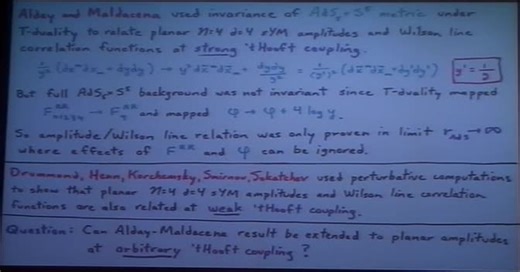 Alday and Maldacena used invariance of AdS₅ × S⁵ metric under
T-duality to relate planar N=4 d=4 sYM amplitudes and Wilson line
correlation functions at strong 't Hooft coupling.
But full AdS₅ × S⁵ background was not invariant since T-duality mapped
and mapped φ → φ + 4 log y.
So amplitude/Wilson line relation was only proven in limit r_AdS → ∞
where effects of F^RR and φ can be ignored.
Drummond, Henn, Korchemsky, Smirnov, Sokatchev used perturbative computations
to show that planar N=4 d=4 sYM amplitudes and Wilson line correlation
functions are also related at weak 't Hooft coupling.
Question: Can Alday-Maldacena result be extended to planar amplitudes
at arbitrary 't Hooft coupling?